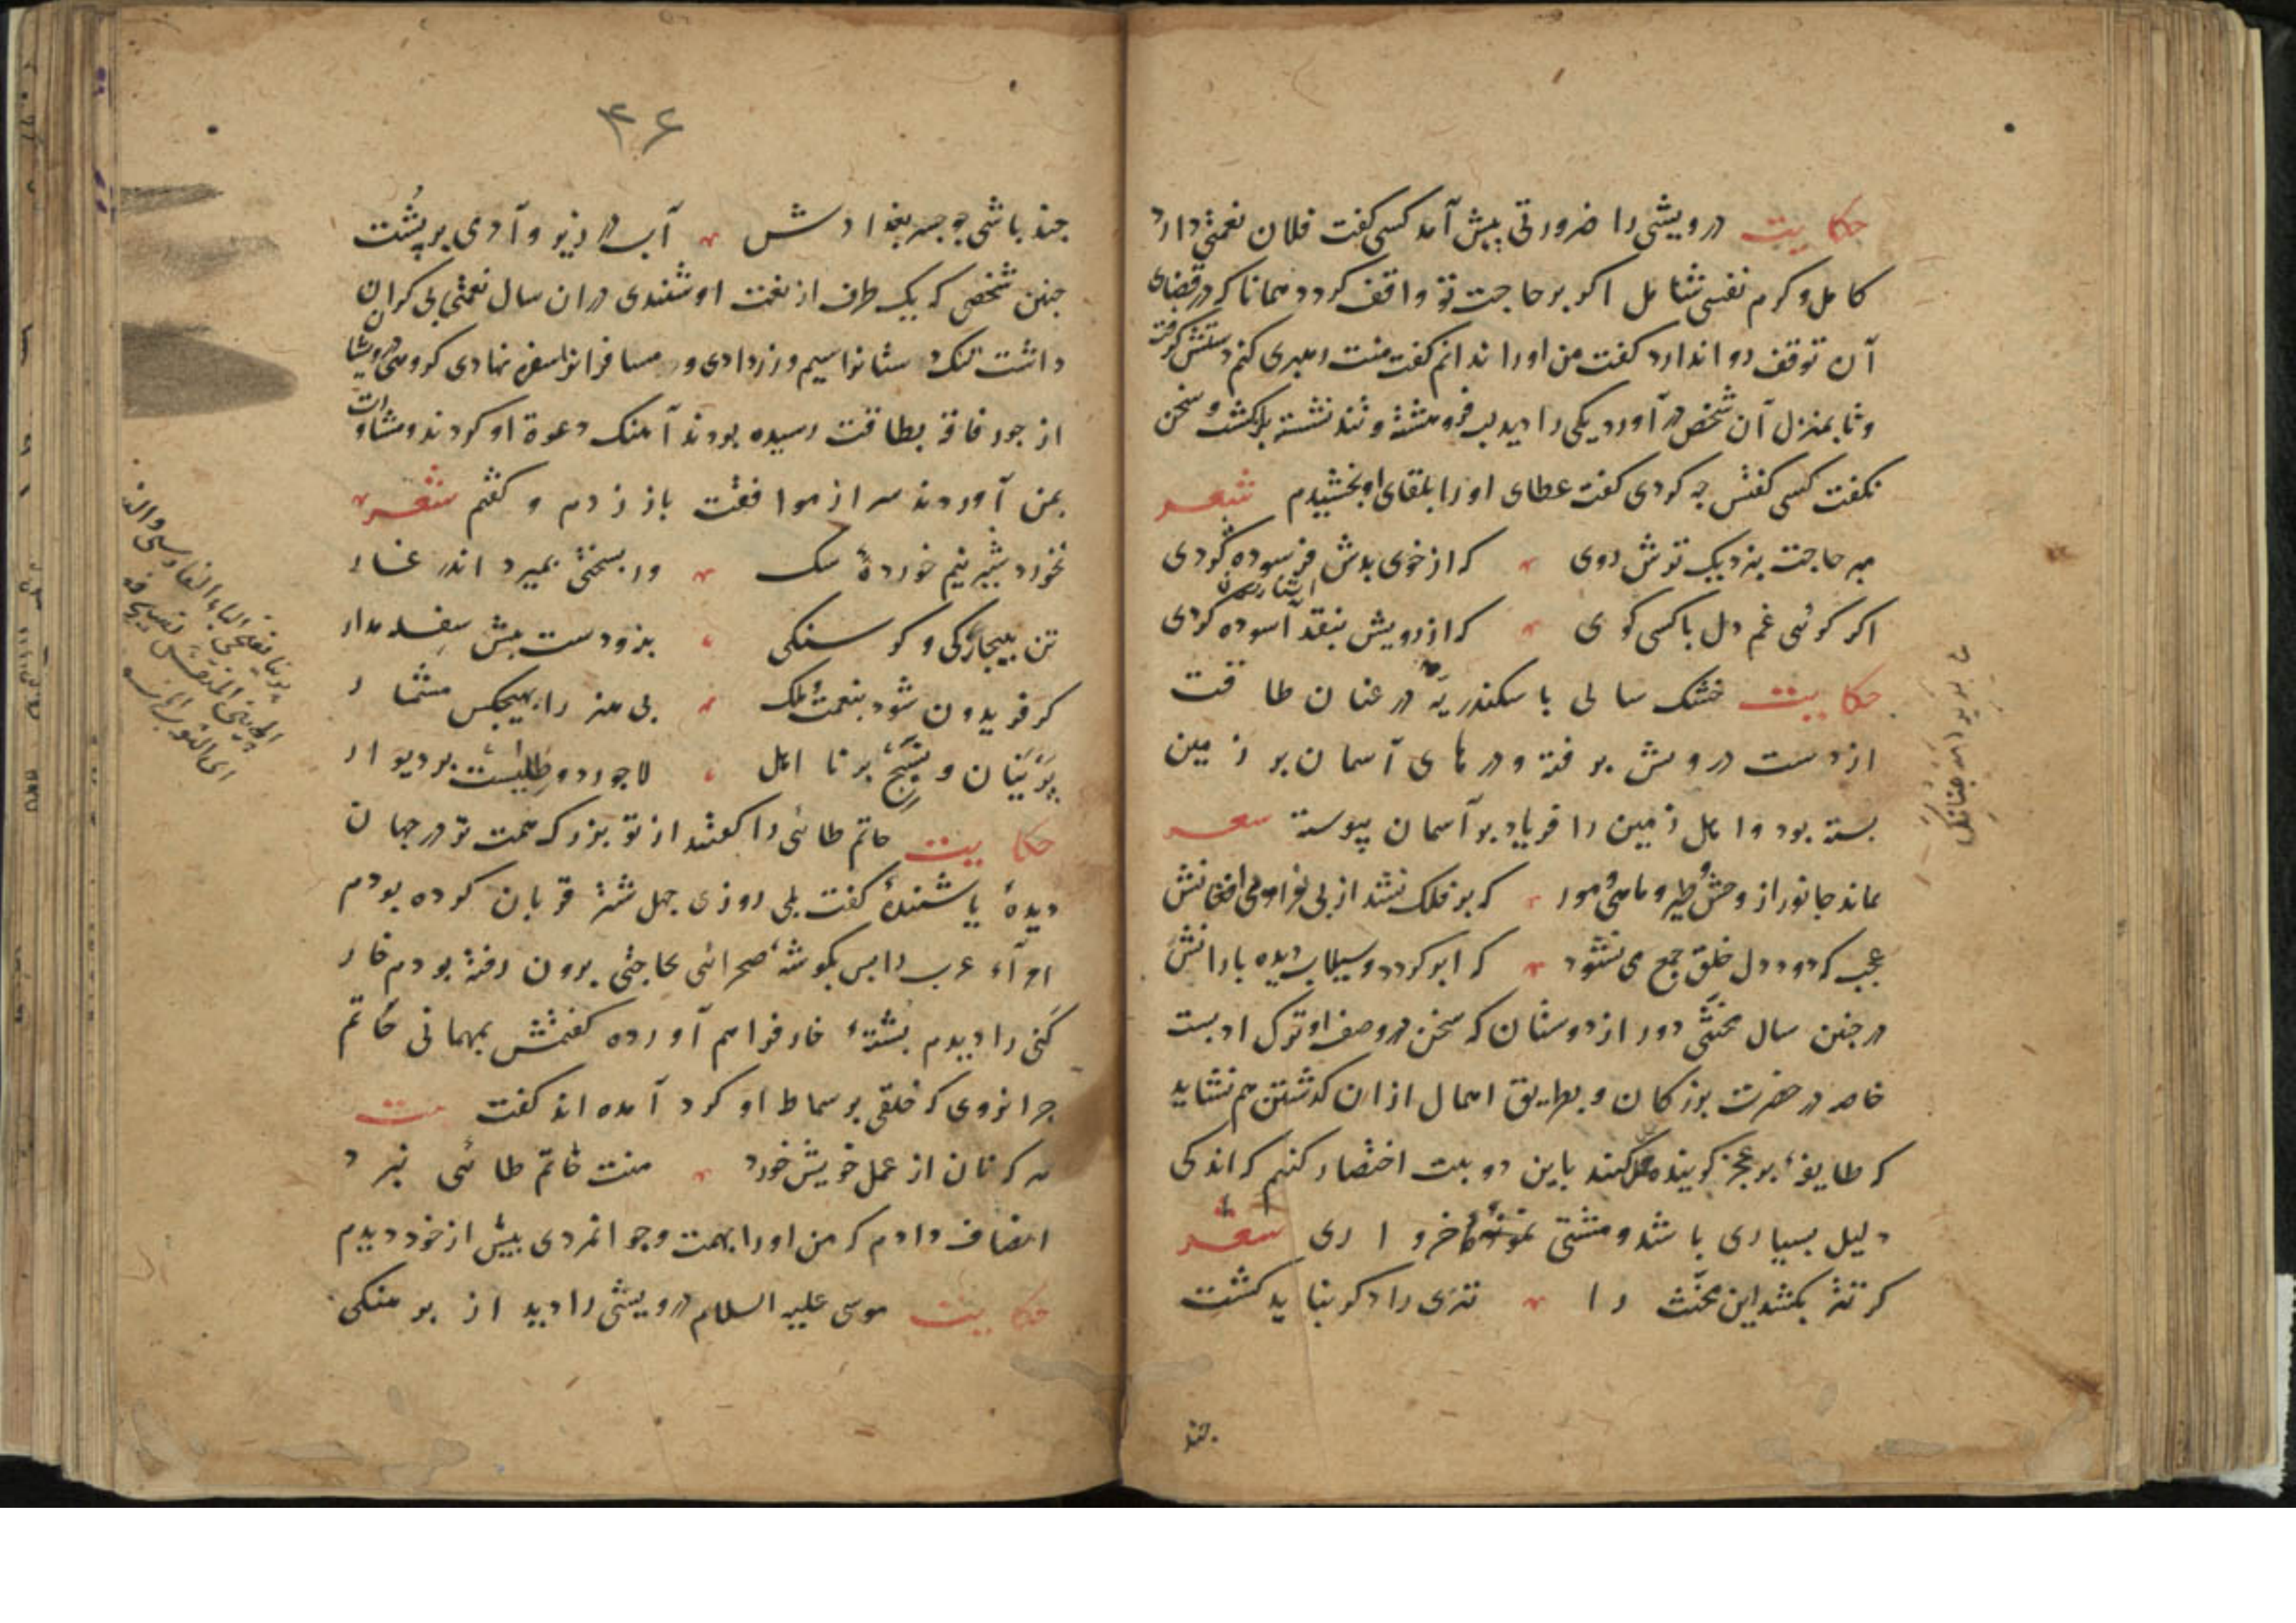 حکایت درویشی را ضرورتی پیش آمد کسی کفت فلان نعمتی دارد
کامل و کرم نفسی شامل اکر بر حاجت تو واقف کردد همانا که در قضای
آن توقف روا ندارد کفت من اورا ندانم کفت منت رهبری کنم دستش کرفت
وتا بمنزل آن شخص در آورد یکی را دید لب فروهشته و تند نشسته برکشت و سخن
نکفت کسی کفتش چه کردی کفت عطای اورا بلقای او بخشیدم شعر
مبر حاجت بنزدیک ترش روی که از خوی بدش فرسوده کردی
اکر کوئی غم دل با کسی کوی که از رویش بنقد آسوده کردی
حکایت خشک سالی باسکندریه در عنان طاقت
از دست درویش برفته و درهای آسمان بر زمین
بسته بود و اهل زمین را فریاد بر آسمان پیوسته شعر
نماند جانور از وحش و طیر و ماهی و مور که بر فلک نشد از بی مرادی افغانش
عجب که دود دل خلق جمع می نشود که ابر کردد و سیلاب دیده بارانش
در جنین سال مخنثی دور از دوستان که سخن در وصف او ترک ادبست
خاصه در حضرت بزرکان و بطریق اهمال از ان کذشتن هم نشاید
که طایفهٔ بر عجز کوینده حمل کنند باین دو بیت اختصار کنیم که اندکی
دلیل بسیاری باشد و مشتی نمونهٔ خرواری شعر
کر تتر بکشد این مخنث را تتری را دکر نباید کشت
چند
چند باشی جو جسر بغدادش آب در زیر و آدمی بر پشت
جنین شخصی که یک طرف از نعمت او شنیدی در ان سال نعمتی بی کران
داشت تنک دستانرا سیم و زر دادی و مسافرانرا سفره نهادی کروهی درویشان
از جور فاقه بطاقت رسیده بودند آهنک دعوة او کردند و مشاورت
بمن آوردند سر از موافقت باز زدم و کفتم شعر
نخورد شیر نیم خوردهٔ سک ور بسختی بمیرد اندر غار
تن ببیچارکی و کرسنکی بنه و دست پیش سفله مدار
کر فریدون شود بنعمت و ملک بی هنر را بهیچکس مشمار
پرنیان و نسیج بر نا اهل لاجورد و طلیست بر دیوار
حکایت حاتم طائی را کفتند از تو بزرک همت تر در جهان
دیدهٔ یا شنیدهٔ کفت بلی روزی چهل شتر قربان کرده بودم
امرآء عرب را پس بکوشهٔ صحرائی بحاجتی برون رفته بودم خار
کنی را دیدم پشتهٔ خار فراهم آورده کفتمش بمهمانی حاتم
چرا نروی که خلقی بر سماط او کرد آمده اند کفت بیت
هر که نان از عمل خویش خورد منت حاتم طائی نبرد
انصاف دادم که من اورا بهمت وجوانمردی بیش از خود دیدم
حکایت موسی علیه السلام درویشی را دید از برهنکی